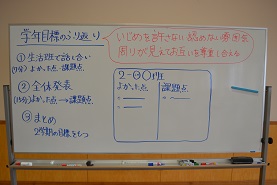 学年目標のふり返り
いじめを許さない認めない雰囲気
周りが見えてお互いを尊重し合える
① 生活班で話し合い
よかった点・課題点
② 全体発表
(15分) よかった点→課題点
③ まとめ
2学期の目標をもつ
2-○○班
よかった点 課題点